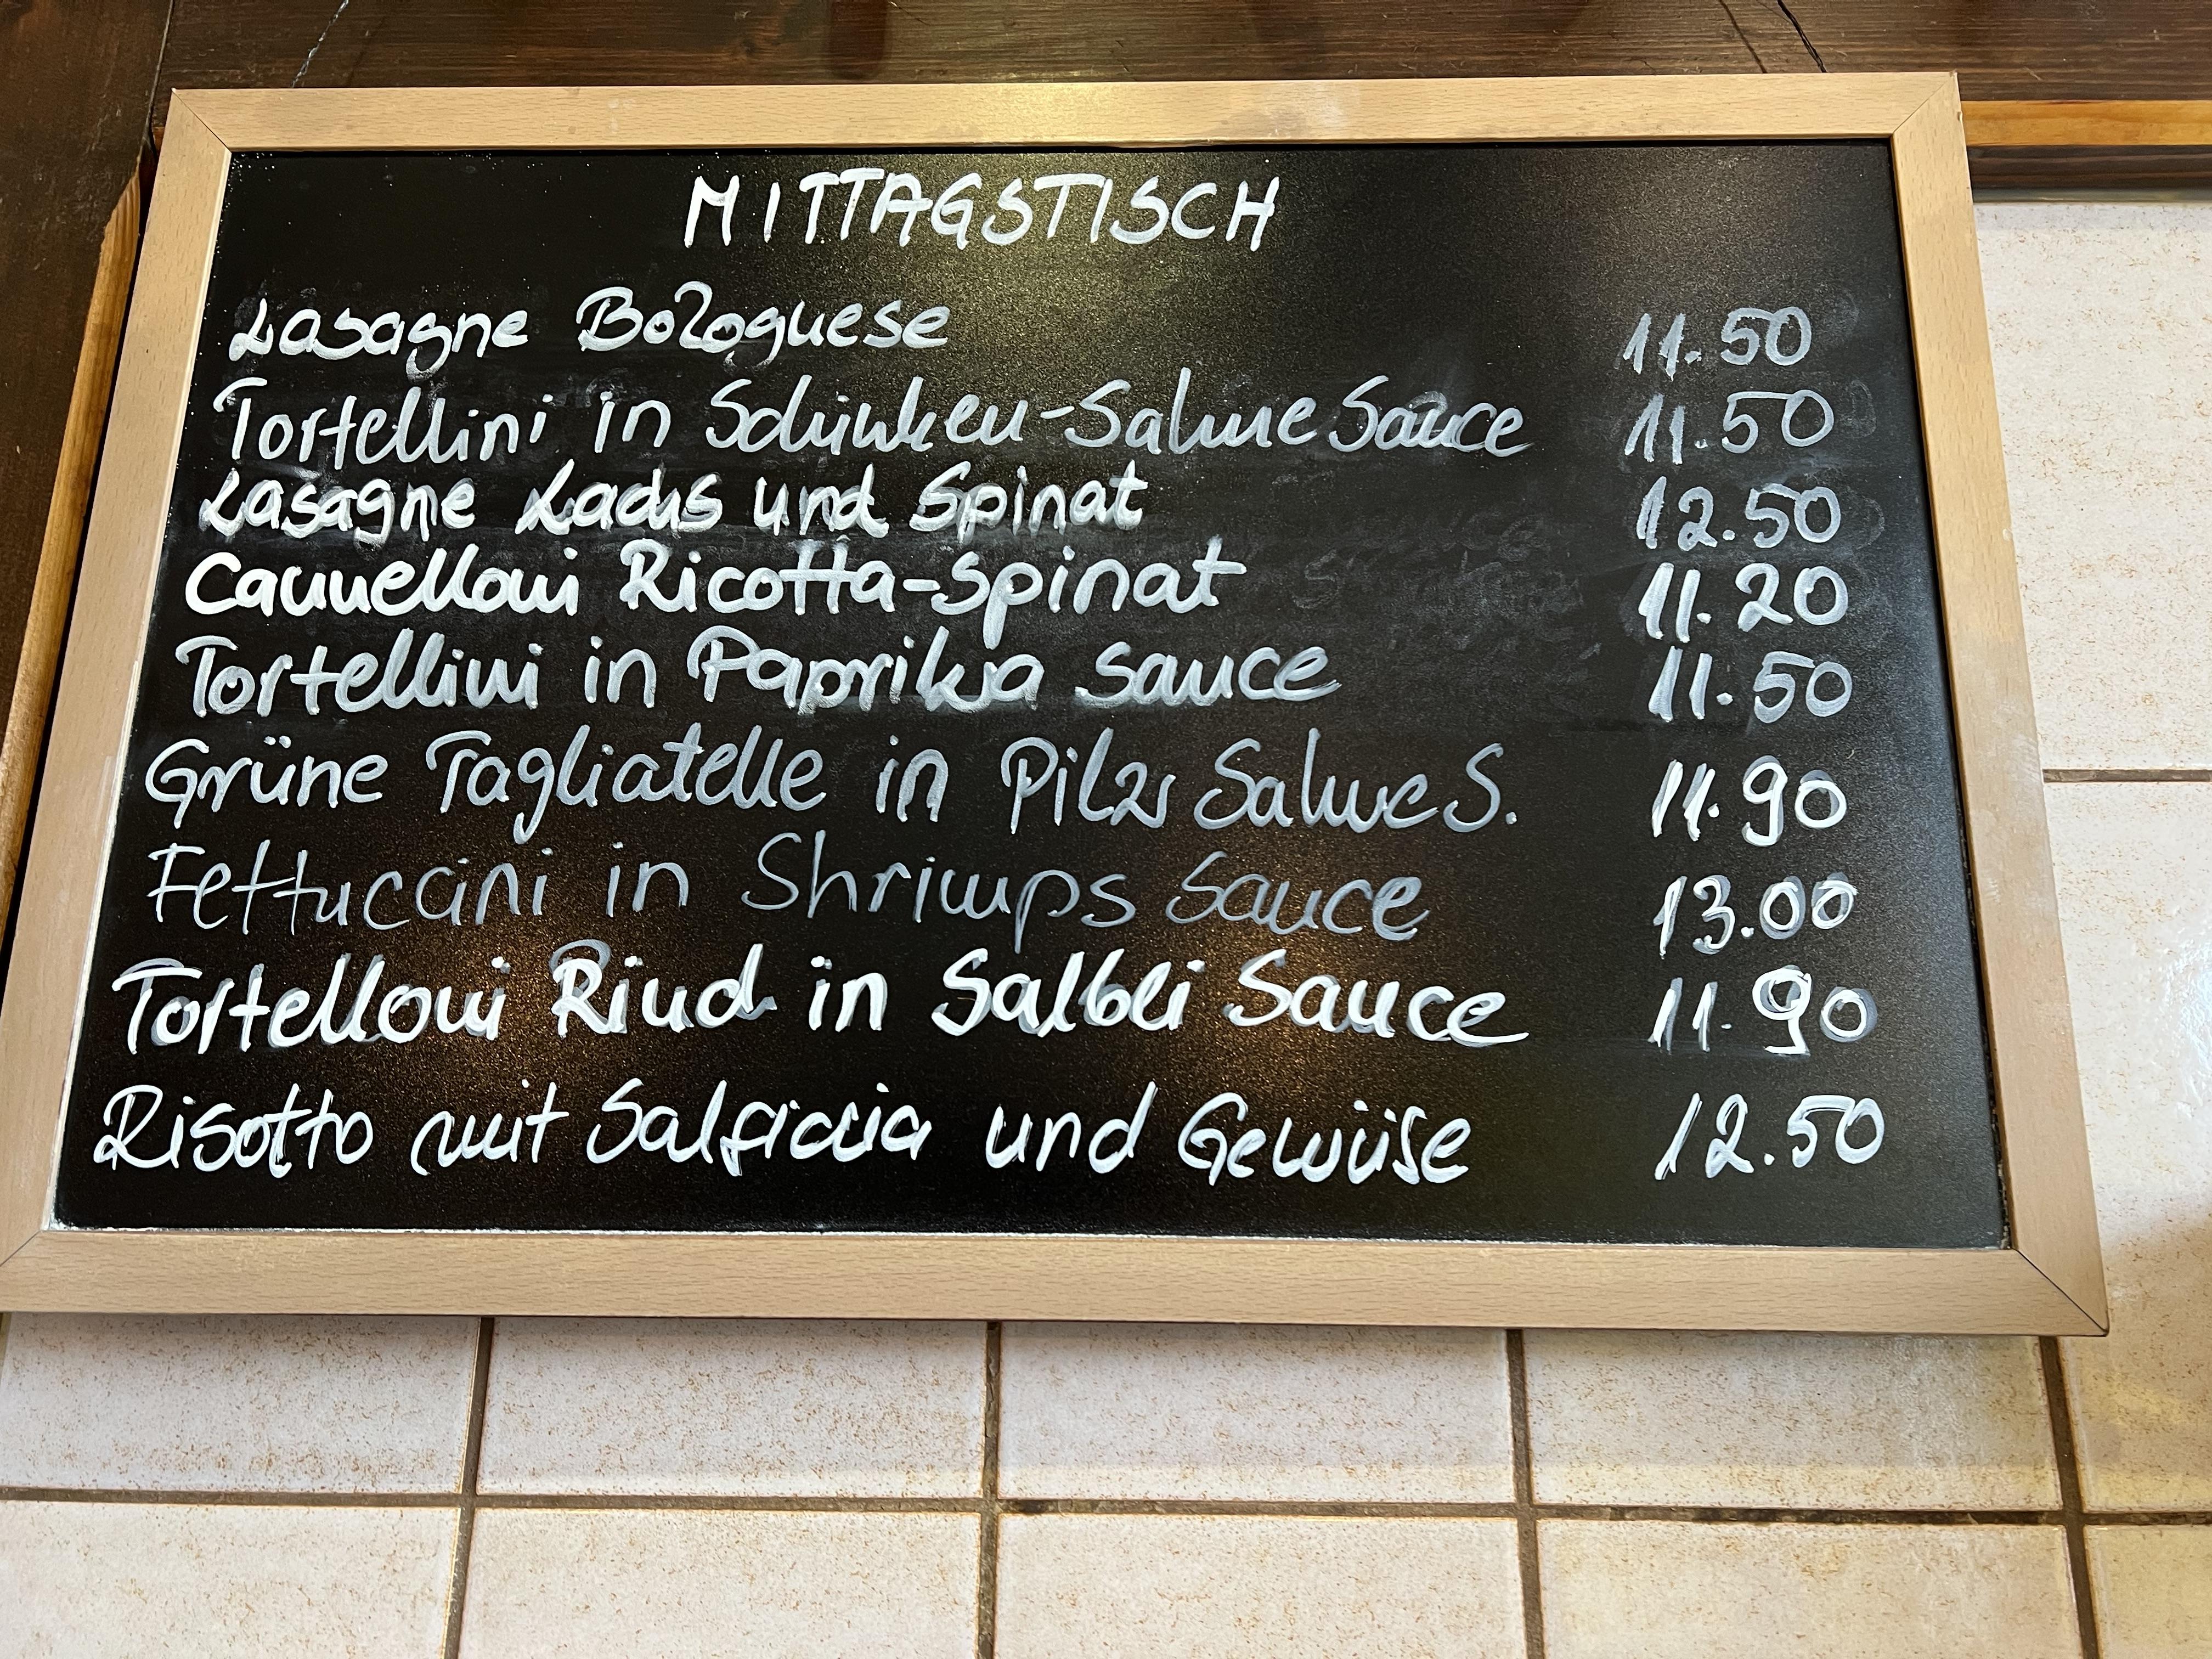 MITTAGSTISCH
Lasagne Bolognese 11.50
Tortellini in Schinken-Sahne Sauce 11.50
Lasagne Lachs und Spinat 12.50
Cannelloni Ricotta-Spinat 11.20
Tortellini in Paprika Sauce 11.50
Grüne Tagliatelle in Pilz Sahne S. 11.90
Fettuccini in Shrimps Sauce 13.00
Tortelloni Rind in Salbei Sauce 11.90
Risotto mit Salsiccia und Gemüse 12.50